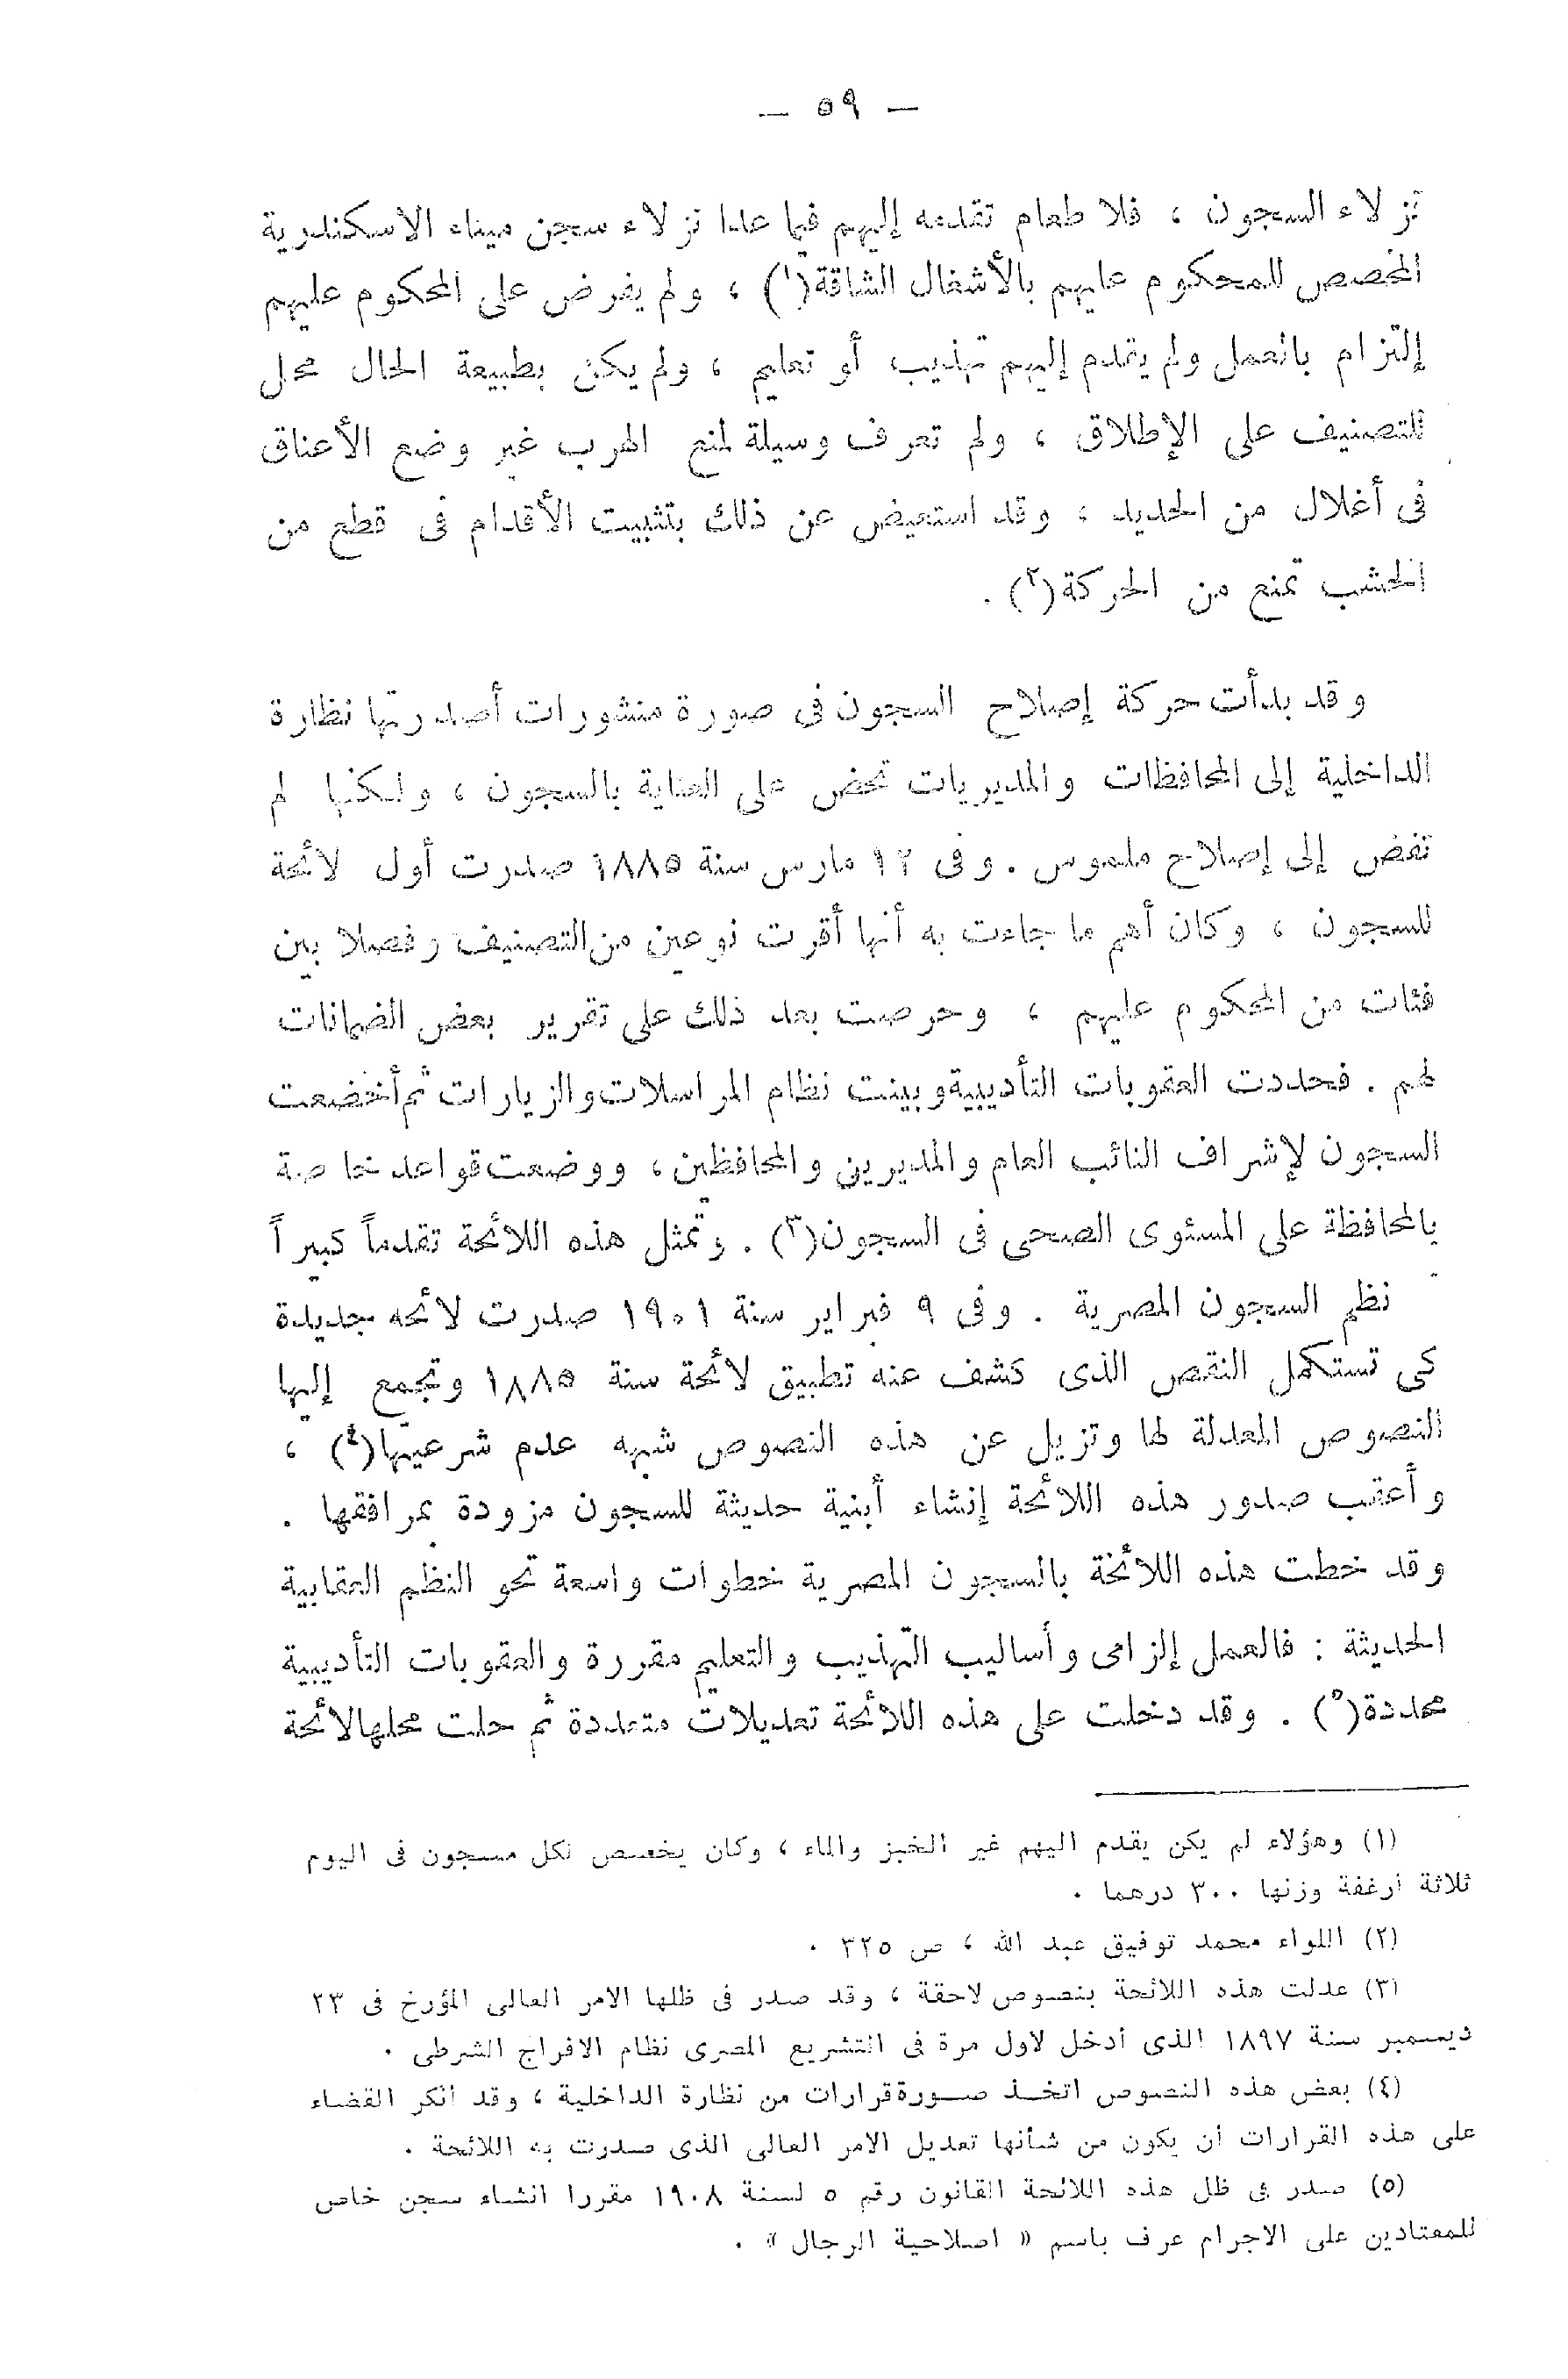 — ٥٩ —
نزلاء السجون ، فلا طعام تقدمه إليهم فيما عدا نزلاء سجن ميناء الاسكندرية
المخصص للمحكوم عليهم بالأشغال الشاقة(١) ، ولم يفرض على المحكوم عليهم
إلتزام بالعمل ولم يقدم إليهم تهذيب أو تعليم ، ولم يكن بطبيعة الحال محل
للتصنيف على الإطلاق ، ولم تعرف وسيلة لمنع الهرب غير وضع الأعناق
فى أغلال من الحديد ، وقد استعيض عن ذلك بتثبيت الأقدام فى قطع من
الخشب تمنع من الحركة(٢) .
وقد بدأت حركة إصلاح السجون فى صورة منشورات أصدرتها نظارة
الداخلية إلى المحافظات والمديريات تحض على العناية بالسجون ، ولكنها لم
تفض إلى إصلاح ملموس . وفى ١٢ مارس سنة ١٨٨٥ صدرت أول لائحة
للسجون ، وكان أهم ما جاءت به أنها أقرت نوعين من التصنيف وفصلا بين
فئات من المحكوم عليهم ، وحرصت بعد ذلك على تقرير بعض الضمانات
لهم . فحددت العقوبات التأديبية وبينت نظام المراسلات والزيارات ثم أخضعت
السجون لإشراف النائب العام والمديرين والمحافظين ، ووضعت قواعد خاصة
بالمحافظة على المستوى الصحى فى السجون(٣) . وتمثل هذه اللائحة تقدماً كبيراً
نظم السجون المصرية . وفى ٩ فبراير سنة ١٩٠١ صدرت لائحه جديدة
كى تستكمل النقص الذى كشف عنه تطبيق لائحة سنة ١٨٨٥ وتجمع إليها
النصوص المعدلة لها وتزيل عن هذه النصوص شبهه عدم شرعيتها(٤) ،
وأعقب صدور هذه اللائحة إنشاء أبنية حديثة للسجون مزودة بمرافقها .
وقد خطت هذه اللائحة بالسجون المصرية خطوات واسعة نحو النظم العقابية
الحديثة : فالعمل إلزامى وأساليب التهذيب والتعليم مقررة والعقوبات التأديبية
محددة(٥) . وقد دخلت على هذه اللائحة تعديلات متعددة ثم حلت محلها لائحة
(١) وهؤلاء لم يكن يقدم اليهم غير الخبز والماء ، وكان يخصص لكل مسجون فى اليوم
ثلاثة أرغفة وزنها ٣٠٠ درهما .
(٢) اللواء محمد توفيق عبد الله ، ص ٣٢٥ .
(٣) عدلت هذه اللائحة بنصوص لاحقة ، وقد صدر فى ظلها الامر العالى المؤرخ فى ٢٣
ديسمبر سنة ١٨٩٧ الذى أدخل لاول مرة فى التشريع المصرى نظام الافراج الشرطى .
(٤) بعض هذه النصوص اتخذ صورة قرارات من نظارة الداخلية ، وقد أنكر القضاء
على هذه القرارات أن يكون من شأنها تعديل الامر العالى الذى صدرت به اللائحة .
(٥) صدر فى ظل هذه اللائحة القانون رقم ٥ لسنة ١٩٠٨ مقررا انشاء سجن خاص
للمعتادين على الاجرام عرف باسم « اصلاحية الرجال » .